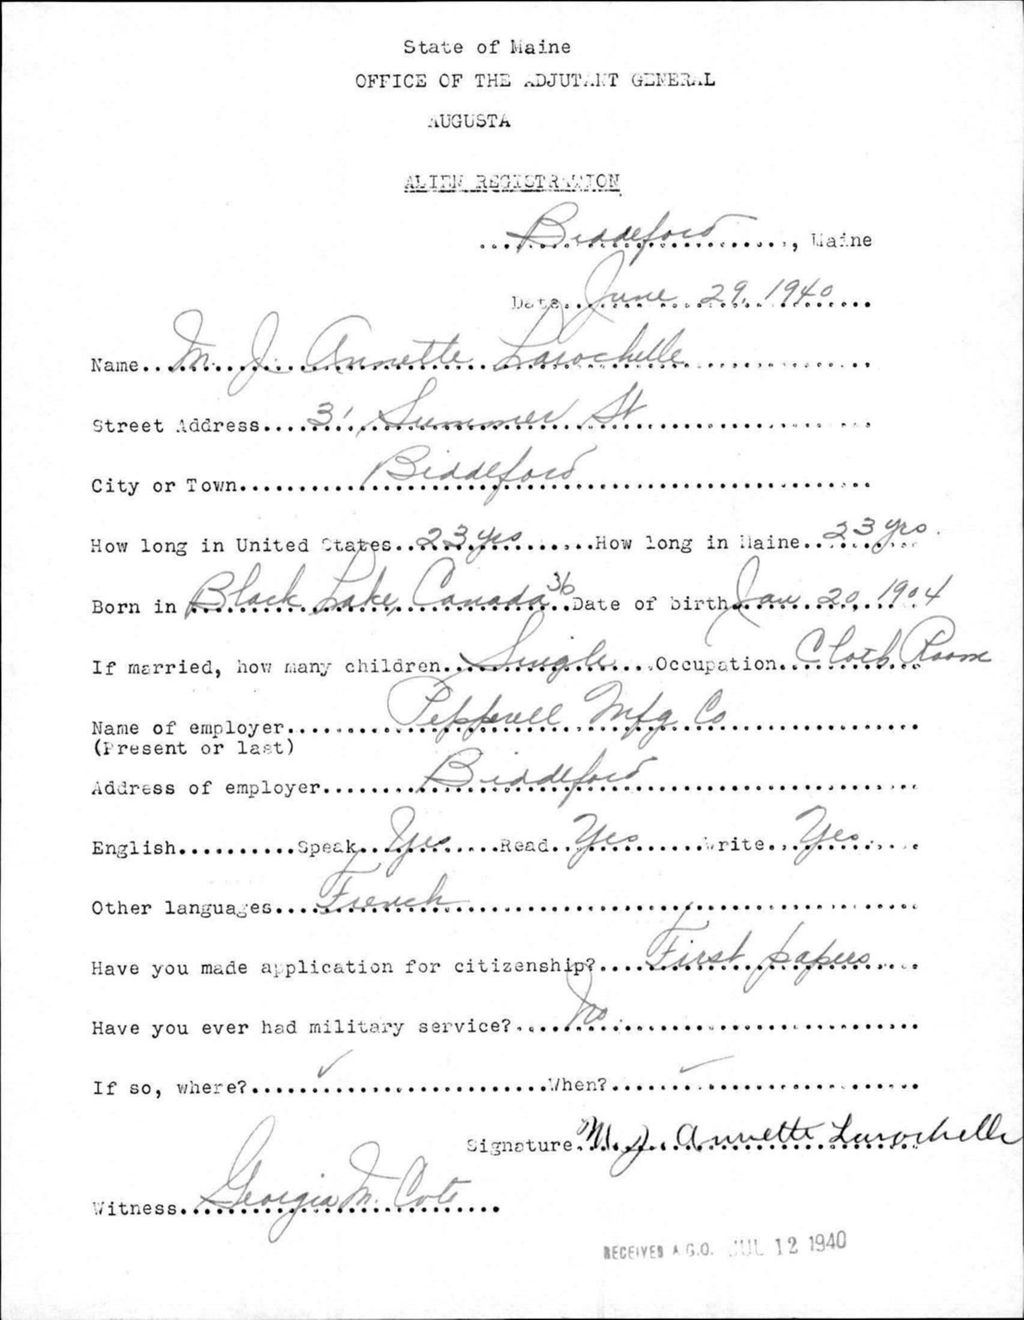 State of Maine
OFFICE OF THE ADJUTANT GENERAL
AUGUSTA
ALIEN REGISTRATION
Biddeford, Maine
Date June 29, 1940
Name M. J. Annette Larochelle
Street Address 31 Summer St
City or Town Biddeford
How long in United States 23 yrs How long in Maine 23 yrs.
Born in Black Lake, Canada 36 Date of birth Jan 20, 1904
If married, how many children Single Occupation Cloth Room
Name of employer Pepperell Mfg Co
(Present or last)
Address of employer Biddeford
English Speak Yes Read Yes Write Yes
Other languages French
Have you made application for citizenship? First papers
Have you ever had military service? No
If so, where? ✓ When? ✓
Signature M. J. Annette Larochelle
Witness Georgia M. Cote
RECEIVED A.G.O. JUL 12 1940